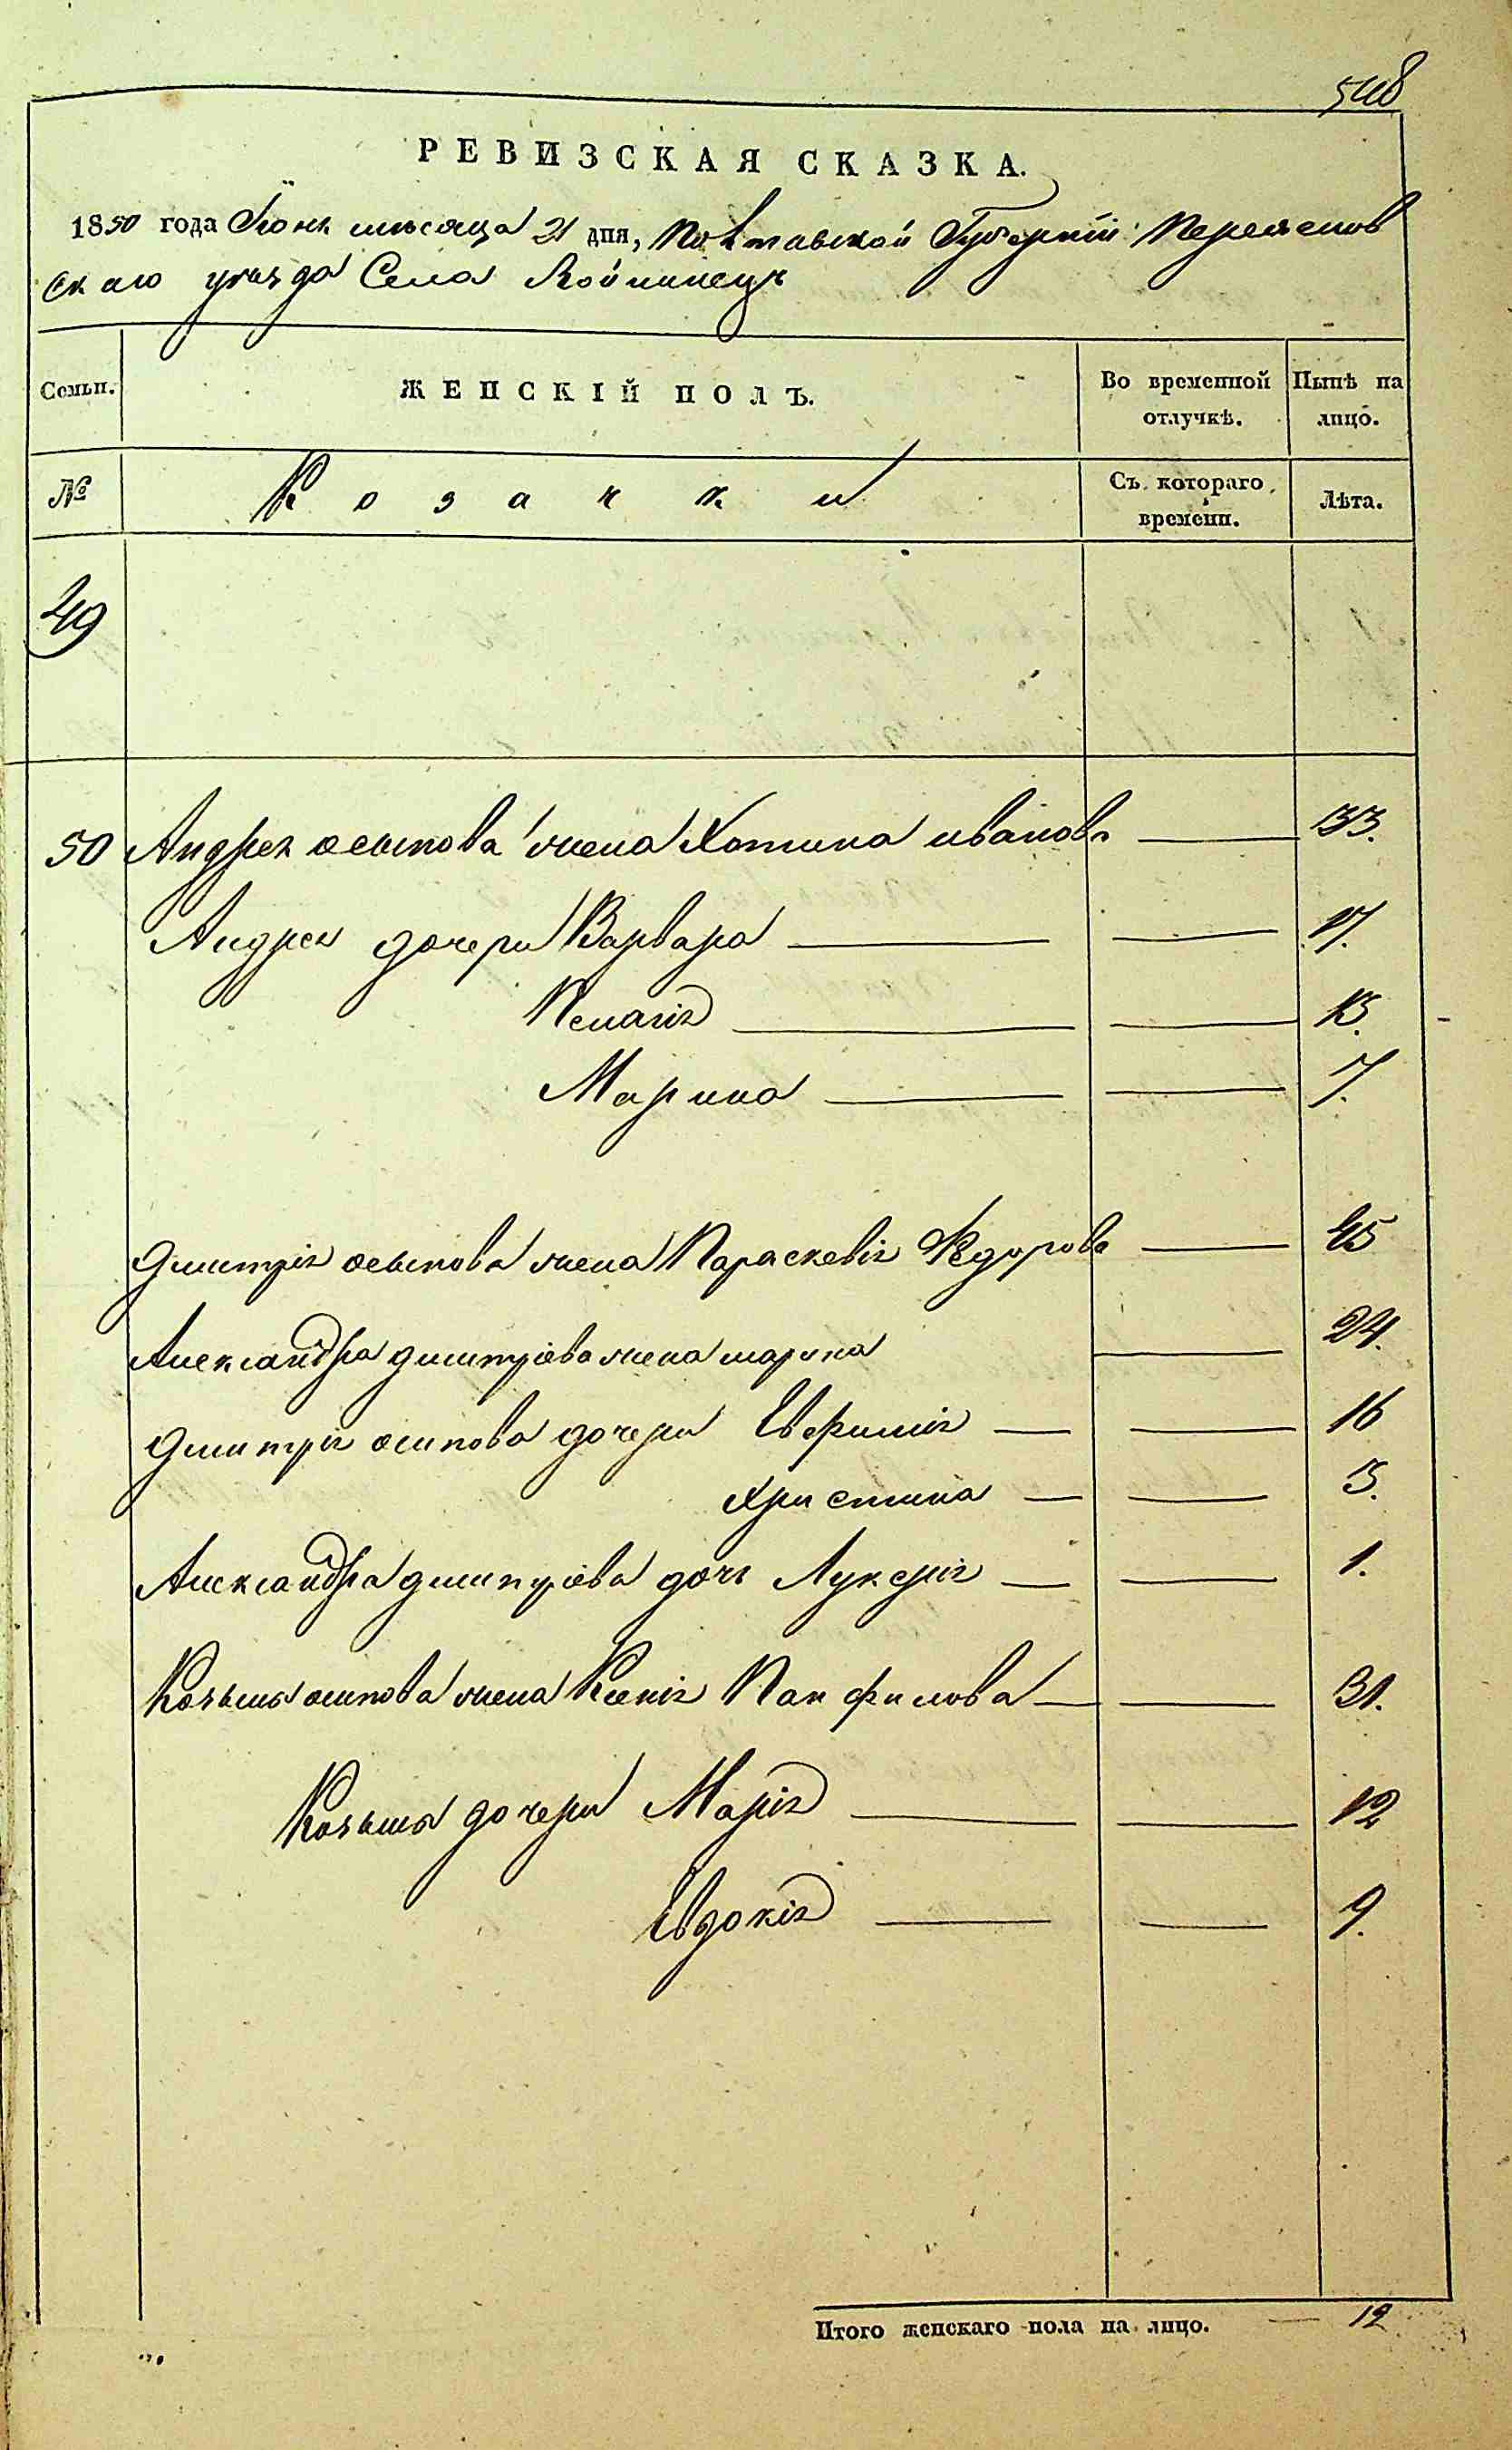 548
РЕВИЗСКАЯ СКАЗКА.
1850 года Іюня месяца 21 дня, Полтавской Губернии Переяслов
скаго уезда Села Войтовец
Семьи. ЖЕНСКІЙ ПОЛЪ. Во временной отлучкѣ. Нынѣ на лицо.
№ Козачки Съ котораго времени. Лѣта.
49
50 Андрея осипова жена Хотина иванова 33.
Андрея дочери Варвара 17.
Пелагія 13.
Марина 7.
Дмитрія осипова жена Параскевія Федорова 45
Александра дмитріева жена марина 24.
Дмитрія осипова дочери Евфимія 16
Христина 3.
Александра дмитріева дочь Лукерія 1.
Козьмы осипова жена Ксенія Панфилова 31.
Козьмы дочери Марія 12
Евдокія 9.
Итого женскаго пола на лицо. 12